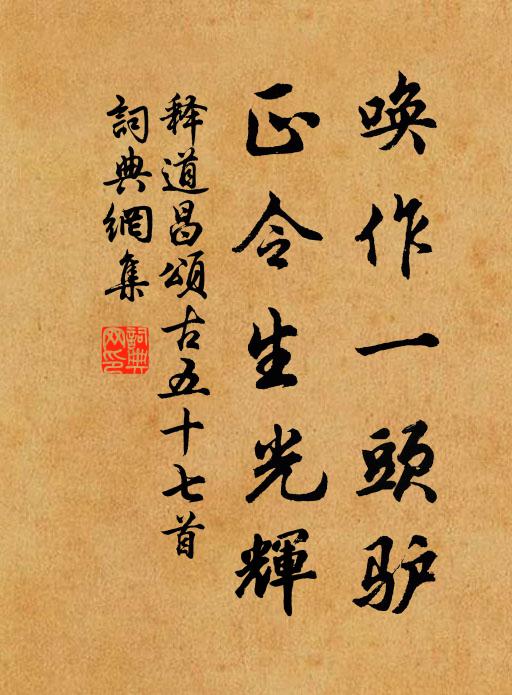 唤作一頭驴
正令生光輝
释道昌頌古五十七首
詞典網集
詞典网印